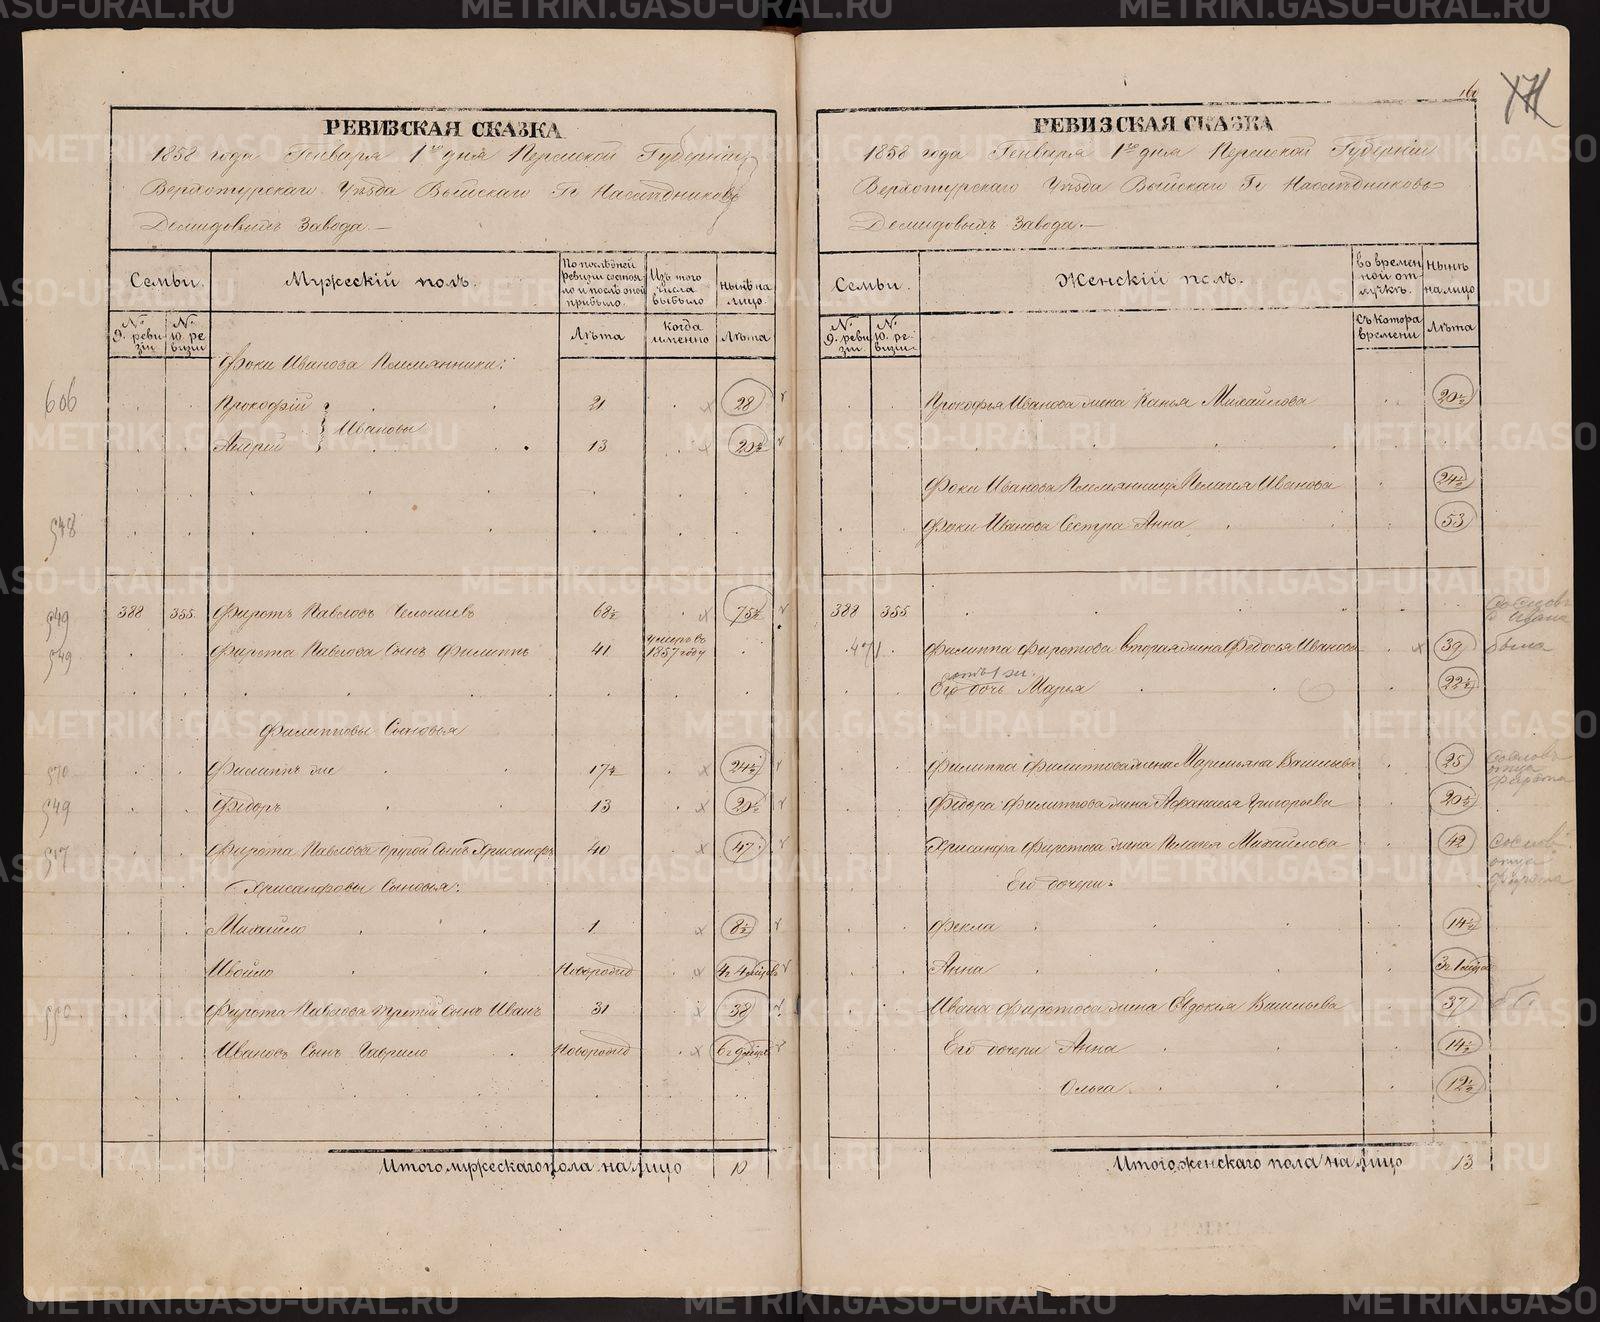 РЕВИЗСКАЯ СКАЗКА
1858 года Генваря 1го дня Пермской Губернiи
Верхотурскаго Уѣзда Выйскаго Гг Наслѣдниковъ
Демидовыхъ Завода.
Семьи.
Мужескiй полъ.
По послѣдней ревизiи состояло и послѣ оной прибыло.
Изъ того числа выбыло
Нынѣ на лицо.
№ 9. ревизiи
№ 10. ревизiи
Лѣта
Когда именно
Лѣта
Фоки Иванова Племянники:
606
Прокофiй 21 28
Ивановы
Андрей 13 20½
548
549 388 355 Фиротъ Павловъ 68½ 75½
549 Фирота Павлова Сынъ Филиппъ 41 умеръ въ 1857 году
Филипповы Сыновья
570 Филиппъ же 17½ 24½
549 Ѳедоръ 13 20½
517 Фирота Павлова другой Сынъ Хрисанфъ 40 47
Хрисанфовы Сыновья:
Михайло 1 8½
Ивойло Новорожд 4г 4мѣсяц
550 Фирота Павлова третiй Сынъ Иванъ 31 38
Ивановъ Сынъ Гаврило Новорожд 6г 9мѣсяц
Итого мужескаго пола на лицо 10
РЕВИЗСКАЯ СКАЗКА
1858 года Генваря 1го дня Пермской Губернiи
Верхотурскаго Уѣзда Выйскаго Гг Наслѣдниковъ
Демидовыхъ Завода.
Семьи.
Женскiй полъ.
Во временной отлучкѣ.
Нынѣ на лицо
№ 9. ревизiи
№ 10. ревизiи
Съ котора времени
Лѣта
Прокофья Иванова жена Михайлова 20½
Фоки Иванова Племянница Пелагея Иванова 24½
Фоки Иванова Сестра Анна 53
388 355
Филиппа Фиротова вторая жена Федосья Иванова 39 была
отъ 1 ж.
Его дочь Марья 22½
Филиппа Филиппова жена Маремьяна Васильева 25
Ѳедора Филиппова жена Афанасья Григорьева 20½
Хрисанфа Фиротова жена Пелагея Михайлова 42
Его дочери:
Фекла 14½
Анна 3г 1мѣсяц
Ивана Фиротова жена Евдокья Васильева 37
Его дочери Анна 14½
Ольга 12½
Итого женскаго пола на лицо 13
METRIKI.GASO-URAL.RU